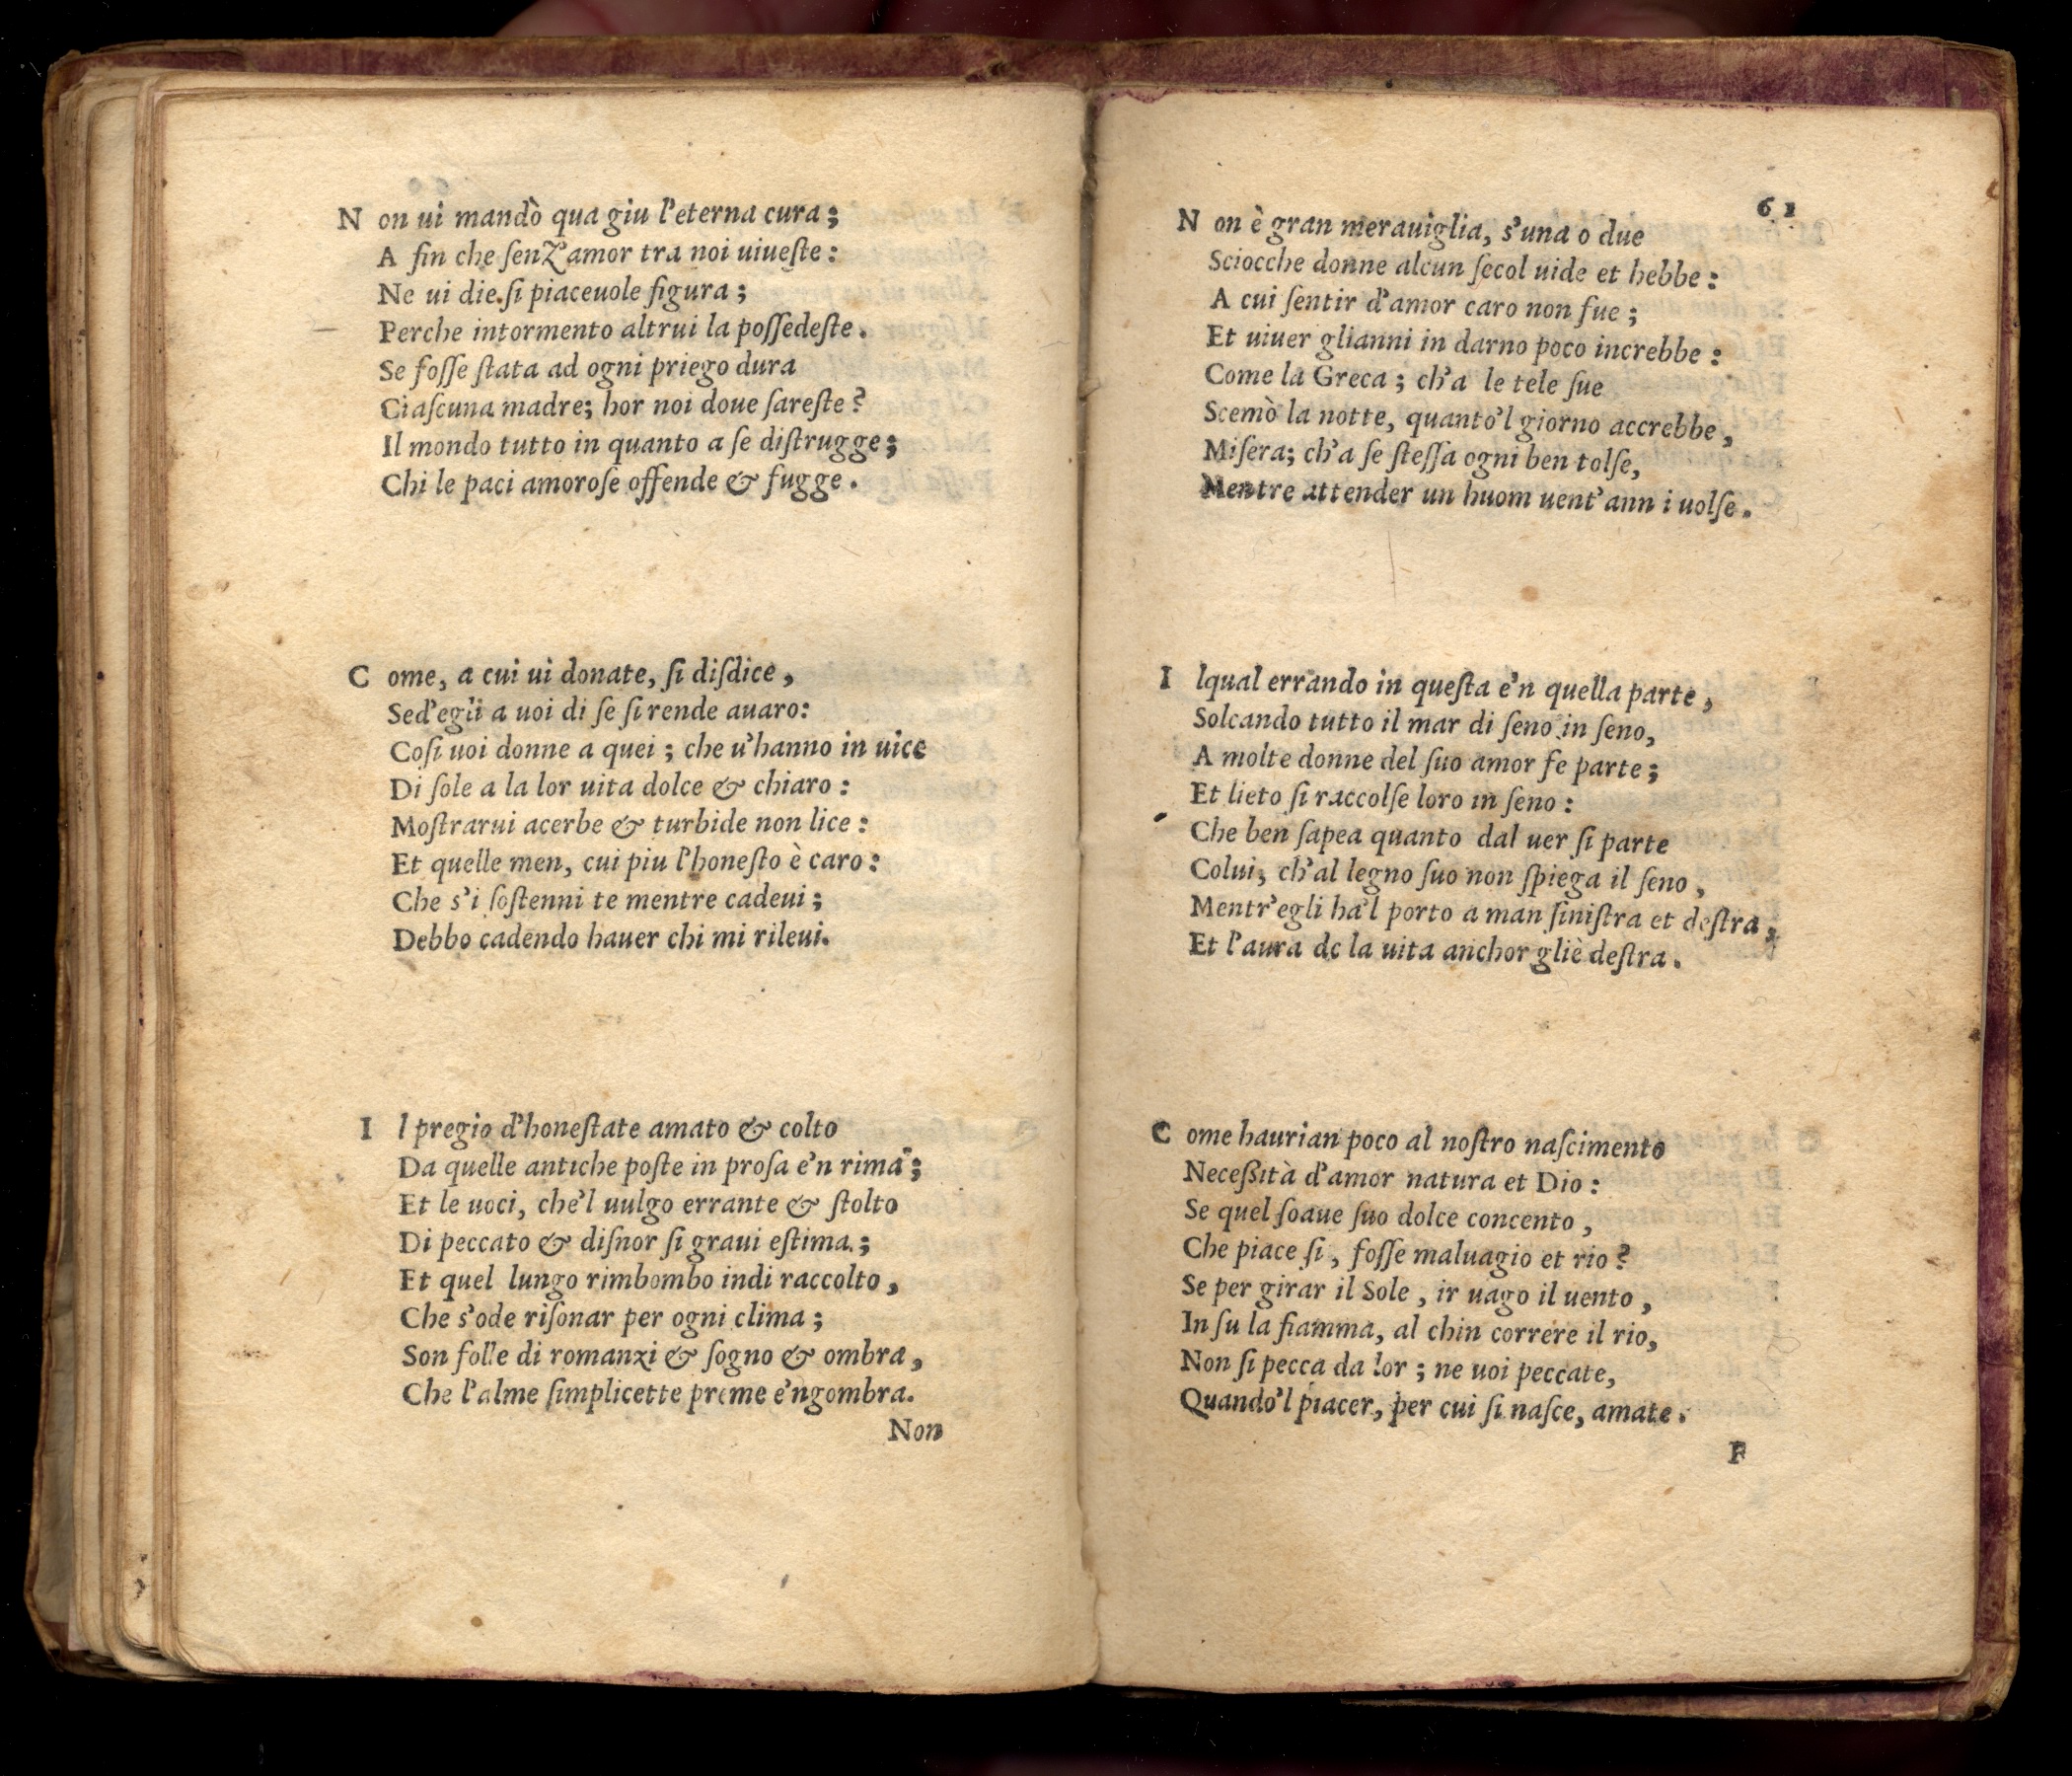 Non ui mandò qua giu l'eterna cura;
A fin che ſenz'amor tra noi uiueſte:
Ne ui die ſi piaceuole figura;
Perche intormento altrui la poſſedeſte.
Se foſſe ſtata ad ogni priego dura
Ciaſcuna madre; hor noi doue ſareſte?
Il mondo tutto in quanto a ſe diſtrugge;
Chi le paci amoroſe offende & fugge.
Come, a cui ui donate, ſi diſdice,
Sed'egli a uoi di ſe ſi rende auaro:
Coſi uoi donne a quei; che u'hanno in uice
Di ſole a la lor uita dolce & chiaro:
Moſtrarui acerbe & turbide non lice:
Et quelle men, cui piu l'honeſto è caro:
Che s'i ſoſtenni te mentre cadeui;
Debbo cadendo hauer chi mi rileui.
Il pregio d'honeſtate amato & colto
Da quelle antiche poſte in proſa e'n rima;
Et le uoci, che'l uulgo errante & ſtolto
Di peccato & diſnor ſi graui eſtima;
Et quel lungo rimbombo indi raccolto,
Che s'ode riſonar per ogni clima;
Son folle di romanzi & ſogno & ombra,
Che l'alme ſimplicette preme e'ngombra.
Non
61
Non è gran merauiglia, s'una o due
Sciocche donne alcun ſecol uide et hebbe:
A cui ſentir d'amor caro non fue;
Et uiuer glianni in darno poco increbbe:
Come la Greca; ch'a le tele ſue
Scemò la notte, quanto'l giorno accrebbe,
Miſera; ch'a ſe ſteſſa ogni ben tolſe,
Mentre attender un huom uent'ann i uolſe.
Ilqual errando in queſta e'n quella parte,
Solcando tutto il mar di ſeno in ſeno,
A molte donne del ſuo amor fe parte;
Et lieto ſi raccolſe loro in ſeno:
Che ben ſapea quanto dal uer ſi parte
Colui, ch'al legno ſuo non ſpiega il ſeno,
Mentr'egli ha'l porto a man ſiniſtra et deſtra,
Et l'aura de la uita anchor gliè deſtra.
Come haurian poco al noſtro naſcimento
Neceßità d'amor natura et Dio:
Se quel ſoaue ſuo dolce concento,
Che piace ſi, foſſe maluagio et rio?
Se per girar il Sole, ir uago il uento,
In ſu la fiamma, al chin correre il rio,
Non ſi pecca da lor; ne uoi peccate,
Quando'l piacer, per cui ſi naſce, amate.
F